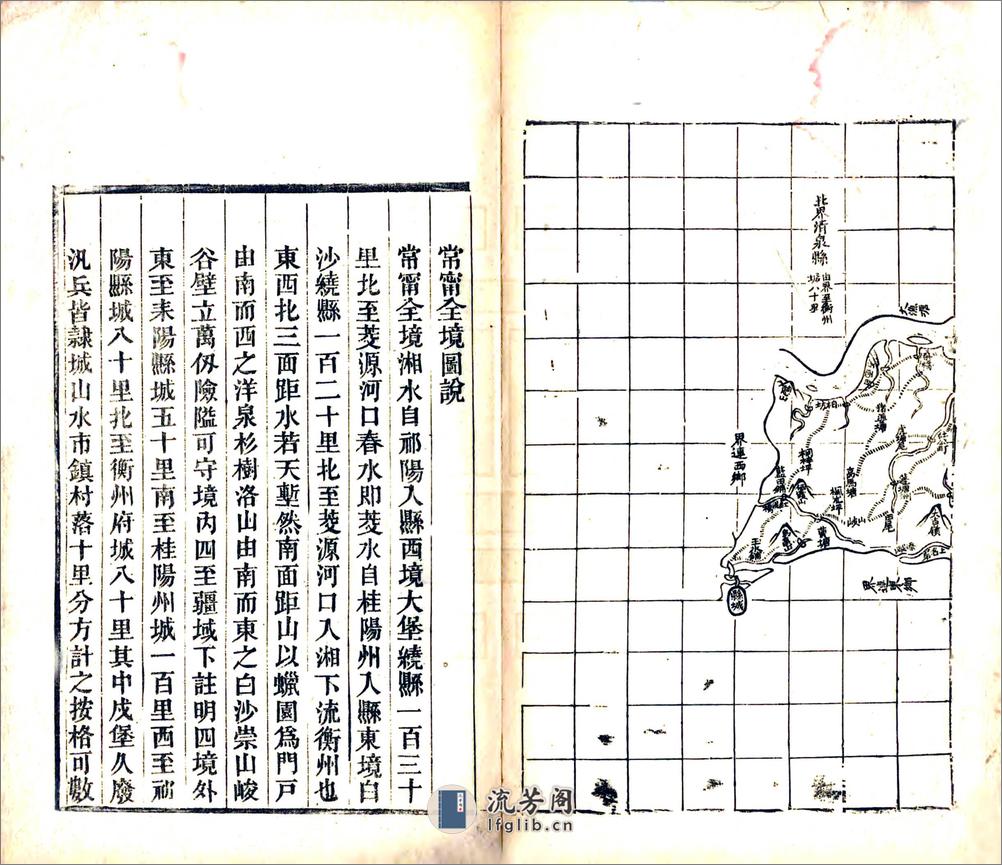 北界清泉縣
由界至衡州
城八十里
界連西鄉
縣城
常甯全境圖說
常甯全境湘水自祁陽入縣西境大堡繞縣一百三十
里北至茭源河口舂水即茭水自桂陽州入縣東境白
沙繞縣一百二十里北至茭源河口入湘下流衡州也
東西北三面距水若天塹然南面距山以蠟園爲門戸
由南而西之洋泉杉樹洛山由南而東之白沙崇山峻
谷壁立萬仭險隘可守境內四至疆域下註明四境外
東至耒陽縣城五十里南至桂陽州城一百里西至祁
陽縣城八十里北至衡州府城八十里其中戍堡久廢
汛兵皆隷城山水市鎮村落十里分方計之按格可數
流芳阁
lfglib.cn